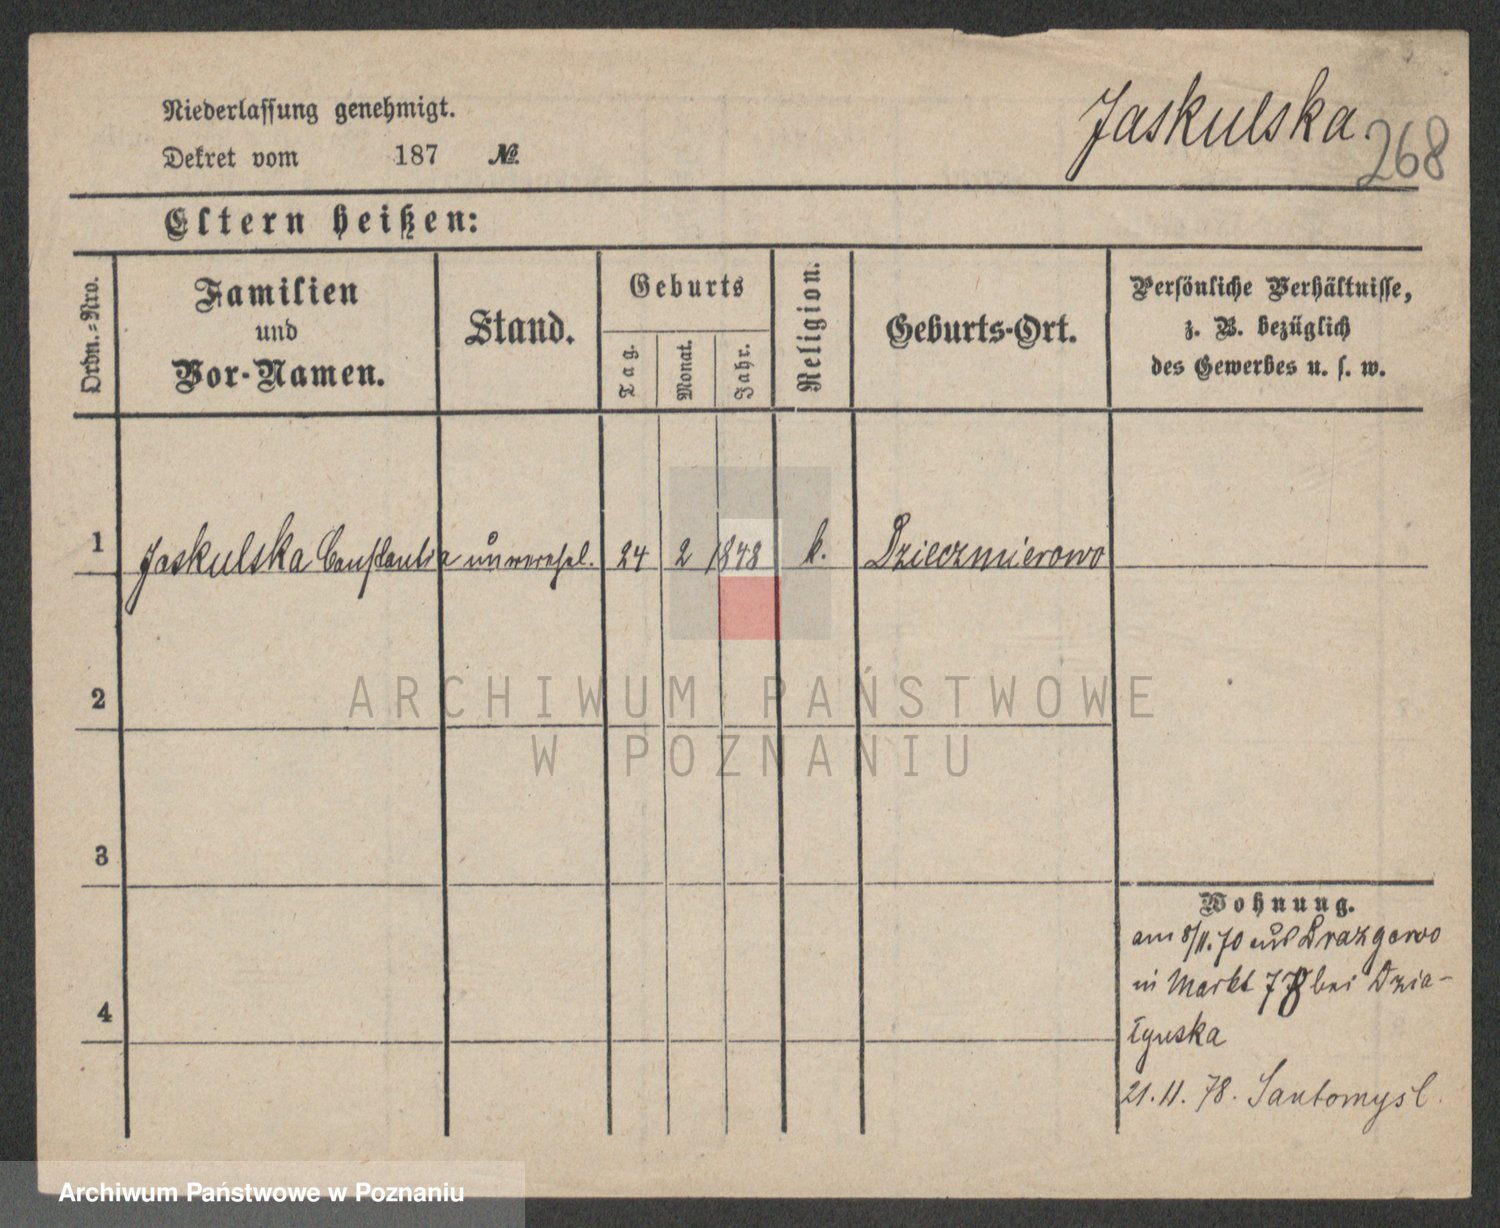 Jaskulska.
268
Niederlassung genehmigt.
Dekret vom 187 №
Eltern heißen:
Ordn.-Nro.
Familien
und
Vor-Namen.
Stand.
Geburts
Tag.
Monat.
Jahr.
Religion.
Geburts-Ort.
Persönliche Verhältnisse,
z. B. bezüglich
des Gewerbes u. s. w.
1 Jaskulska Constantia unverehel. 24 2 1848 k. Dzieczmierowo
2
ARCHIWUM PAŃSTWOWE
W POZNANIU
3
4
Wohnung.
am 8/11.70 aus Drazgowo
in Markt 77 bei Dzia-
łynska
21.11.78. Santomysl.
Archiwum Państwowe w Poznaniu